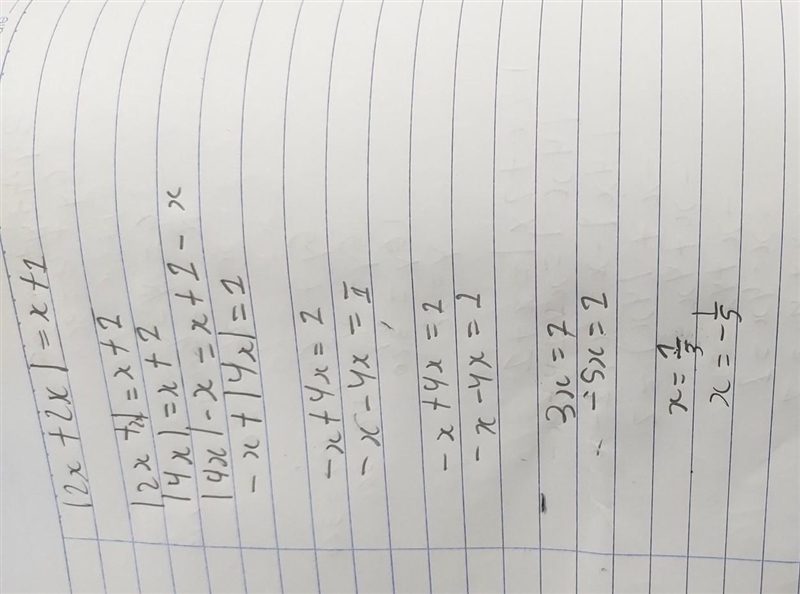 |2x + 2x| = x + 2
|2x + x| = x + 2
|4x| = x + 2
|4x| - x = x + 2 - x
- x + |4x| = 2
- x + 4x = 2
- x - 4x = 1
- x + 4x = 2
- x - 4x = 2
3x = 2
- 5x = 2
x = 1/3
x = - 1/5